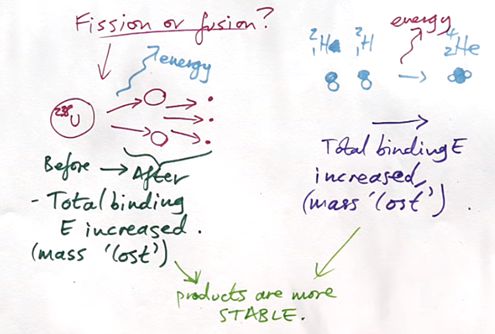 Fission or fusion?
energy
²³⁵U
Before → After
- Total binding
E increased.
(mass 'lost')
energy
²₁H ²₁H → ⁴₂He
Total binding E
increased
(mass 'lost').
products are more
STABLE.